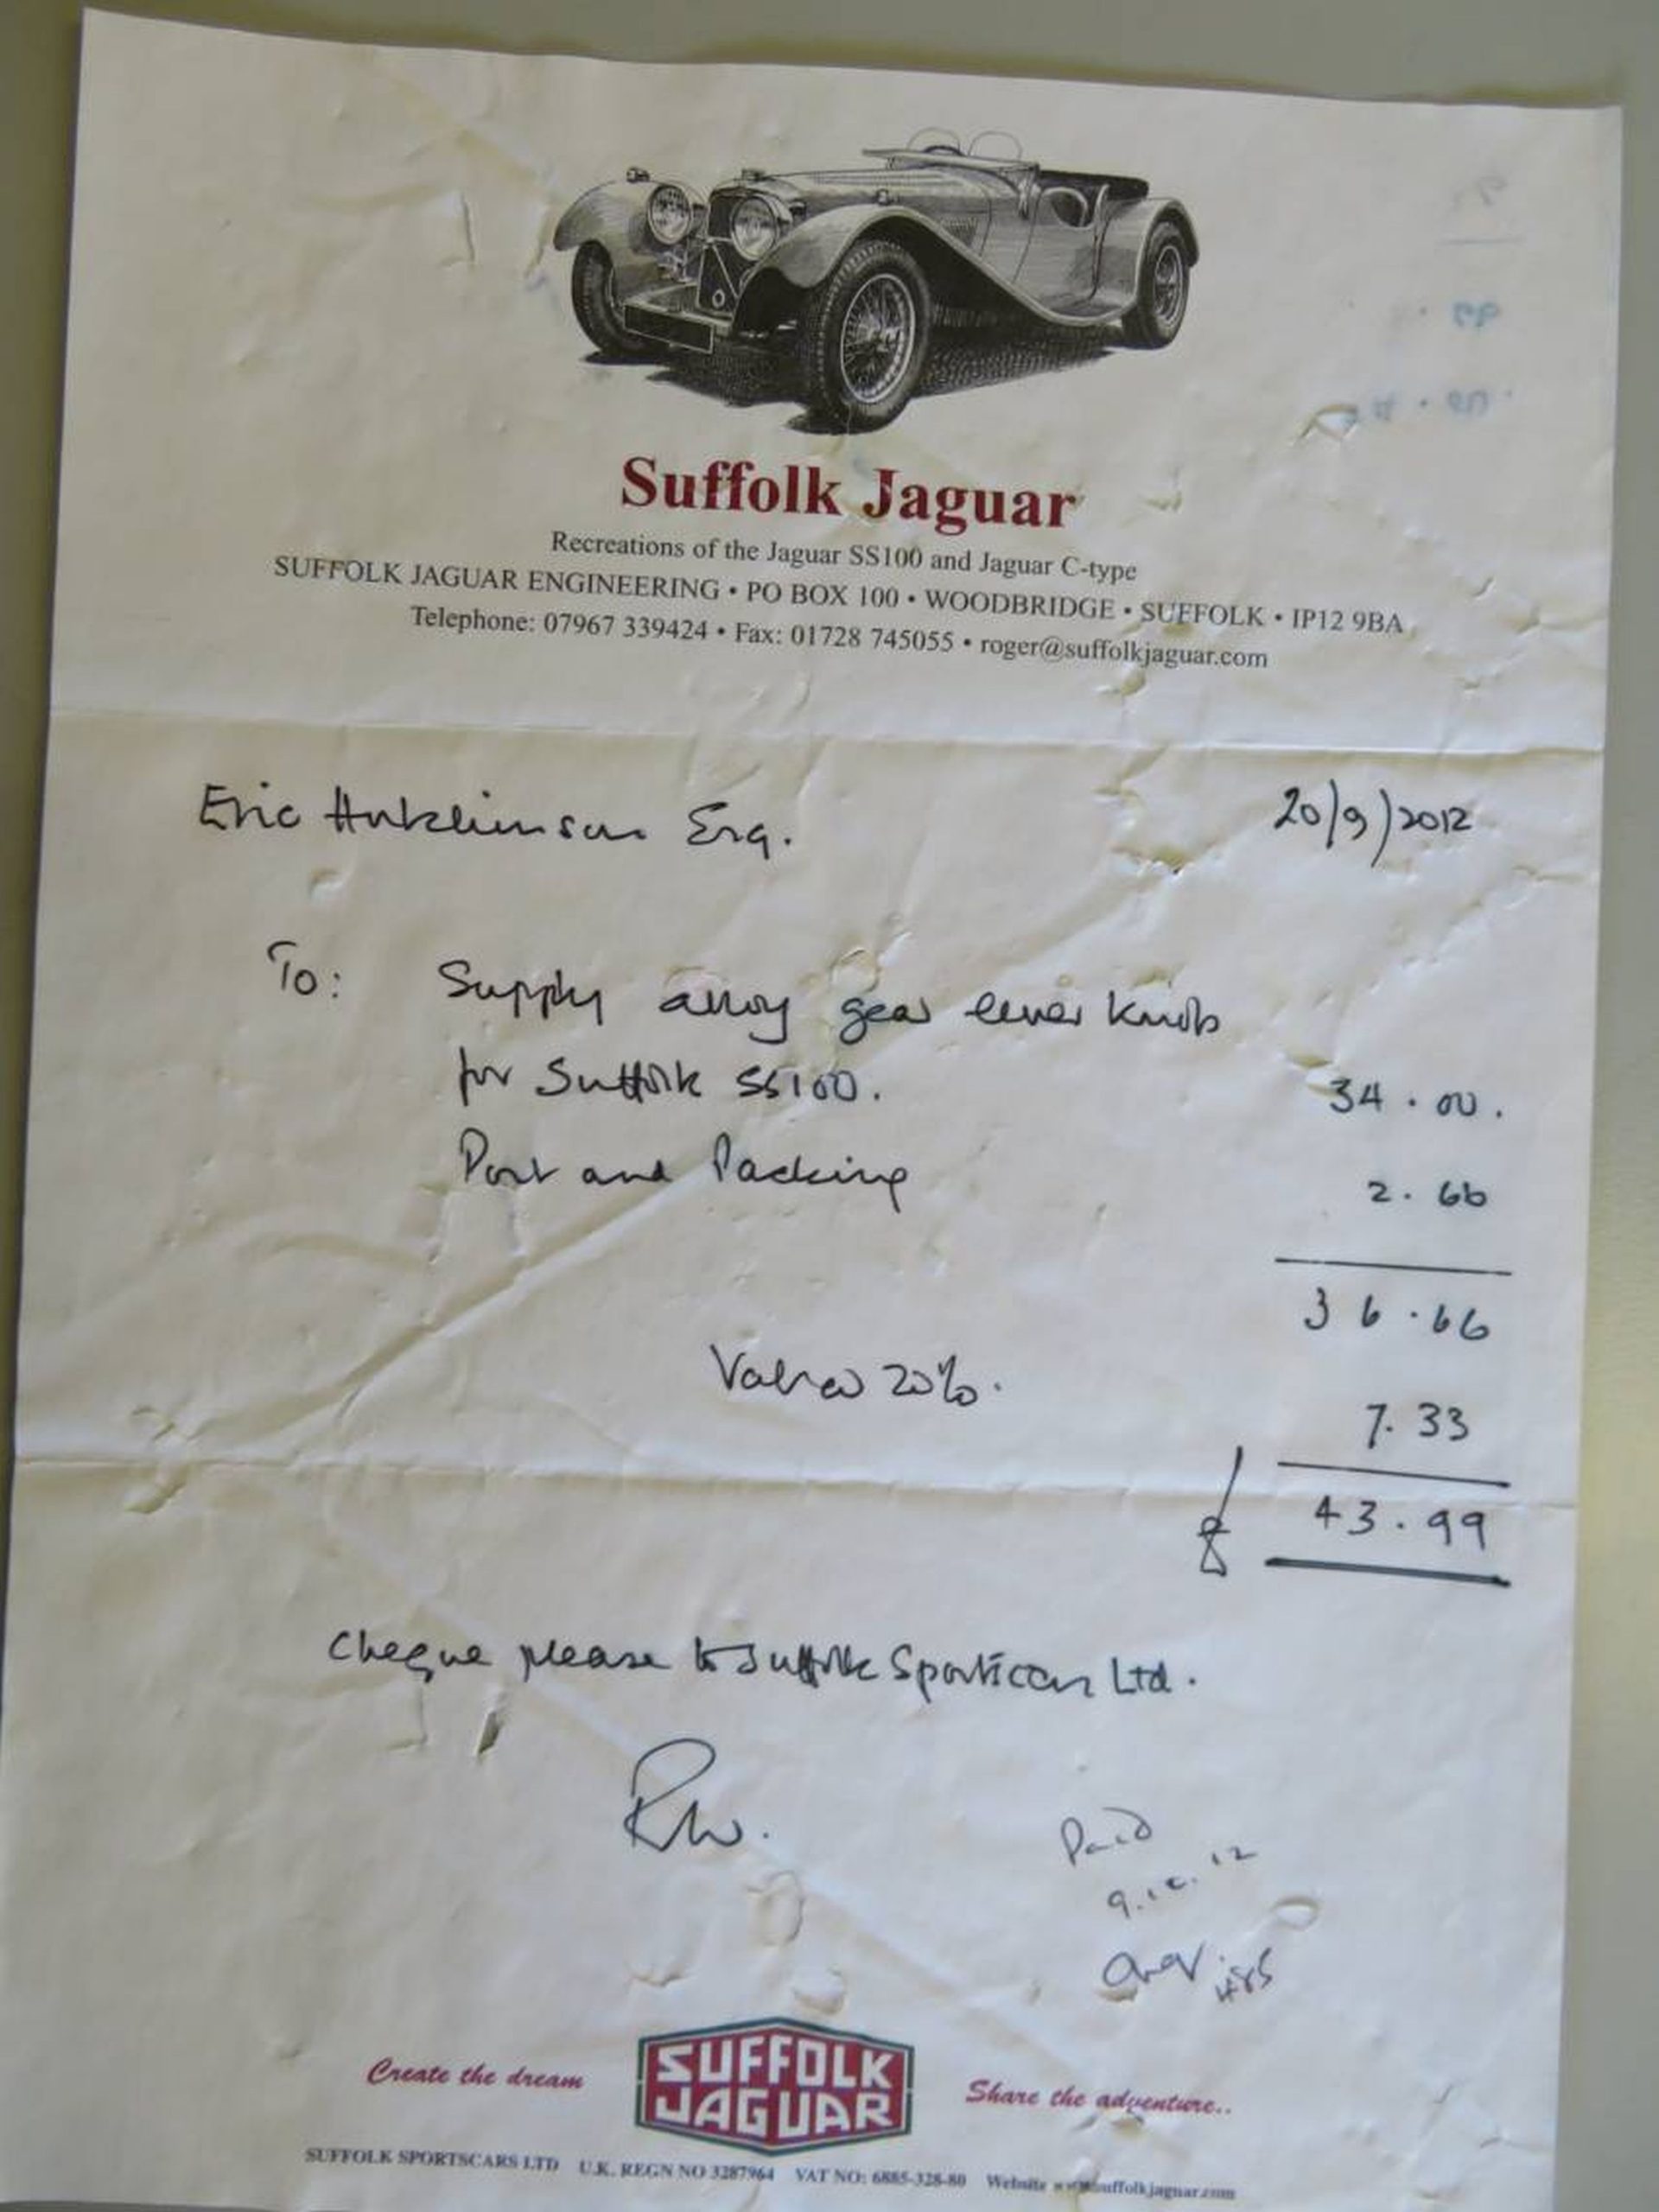 Suffolk Jaguar
Recreations of the Jaguar SS100 and Jaguar C-type
SUFFOLK JAGUAR ENGINEERING • PO BOX 100 • WOODBRIDGE • SUFFOLK • IP12 9BA
Telephone: 07967 339424 • Fax: 01728 745055 • roger@suffolkjaguar.com
Eric Hutchinson Esq. 20/9/2012
To: Supply alloy gear lever knob
for Suffolk SS100. 34.00.
Post and Packing 2.66
36.66
Vat @ 20%. 7.33
£ 43.99
Cheque please to Suffolk Sportscars Ltd.
RW.
Paid
9.10.12
485
Create the dream SUFFOLK JAGUAR Share the adventure..
SUFFOLK SPORTSCARS LTD U.K. REGN NO 3287964 VAT NO: 6885-328-80 Website www.suffolkjaguar.com